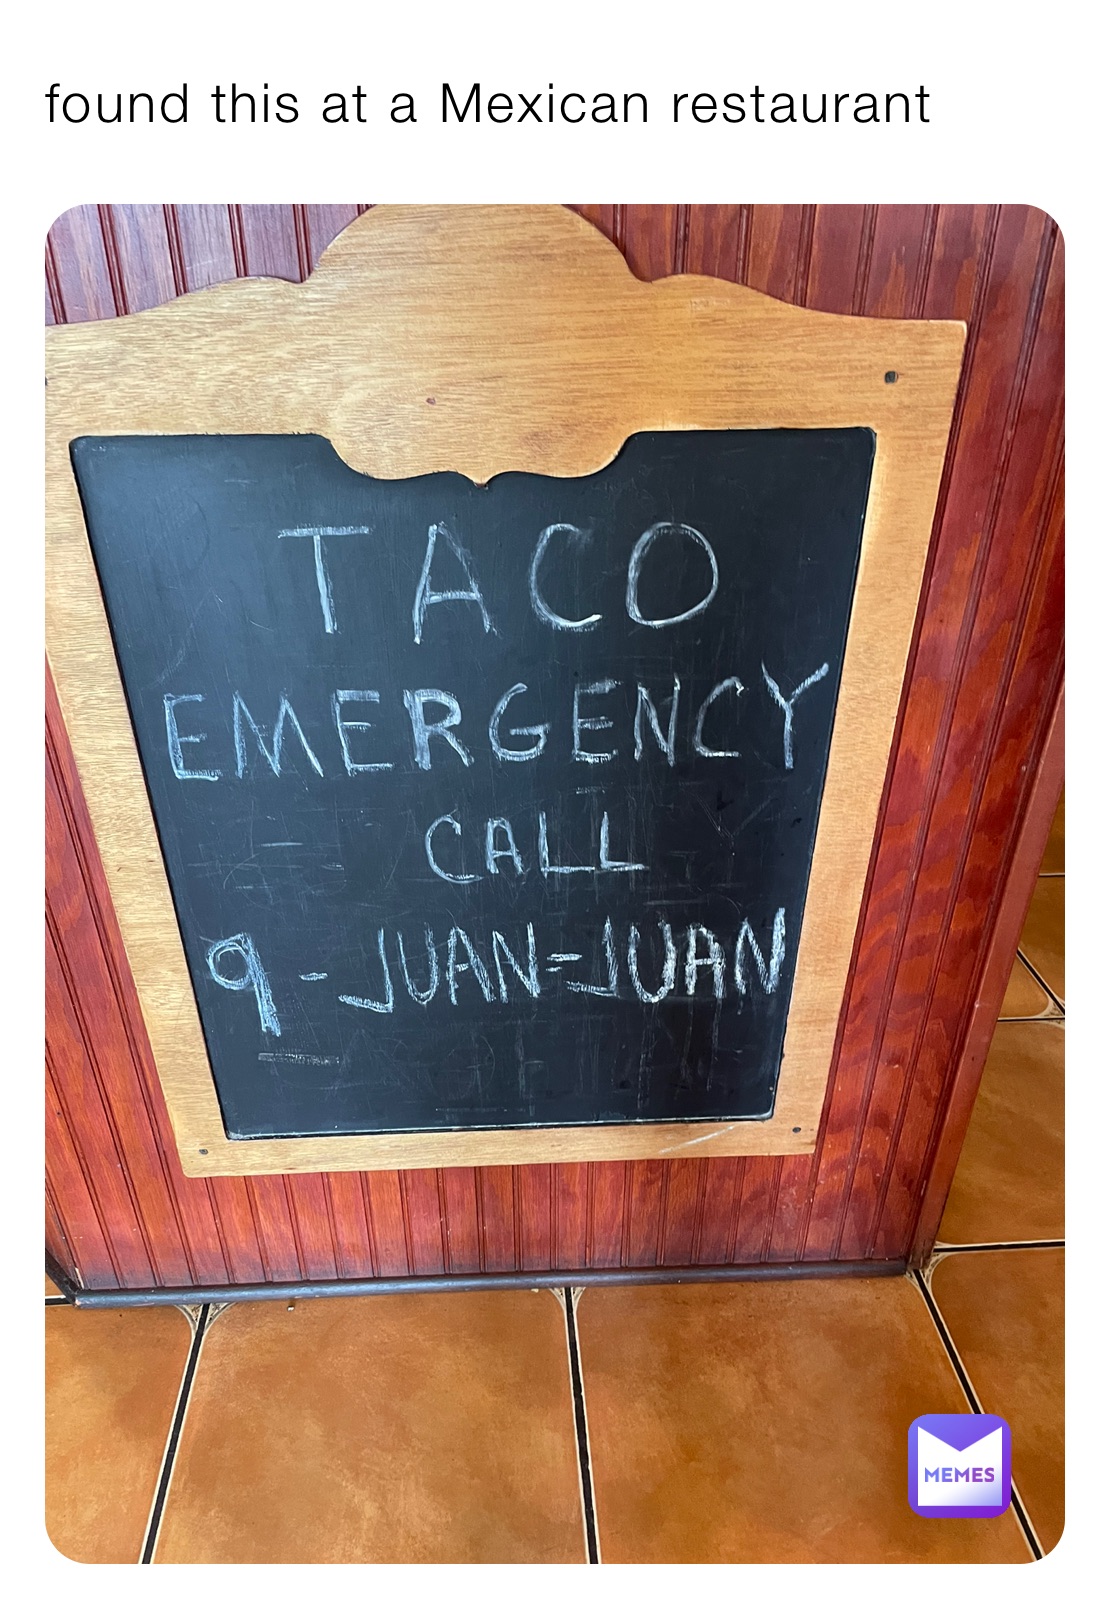 found this at a Mexican restaurant
TACO
EMERGENCY
CALL
9-JUAN=JUAN
MEMES